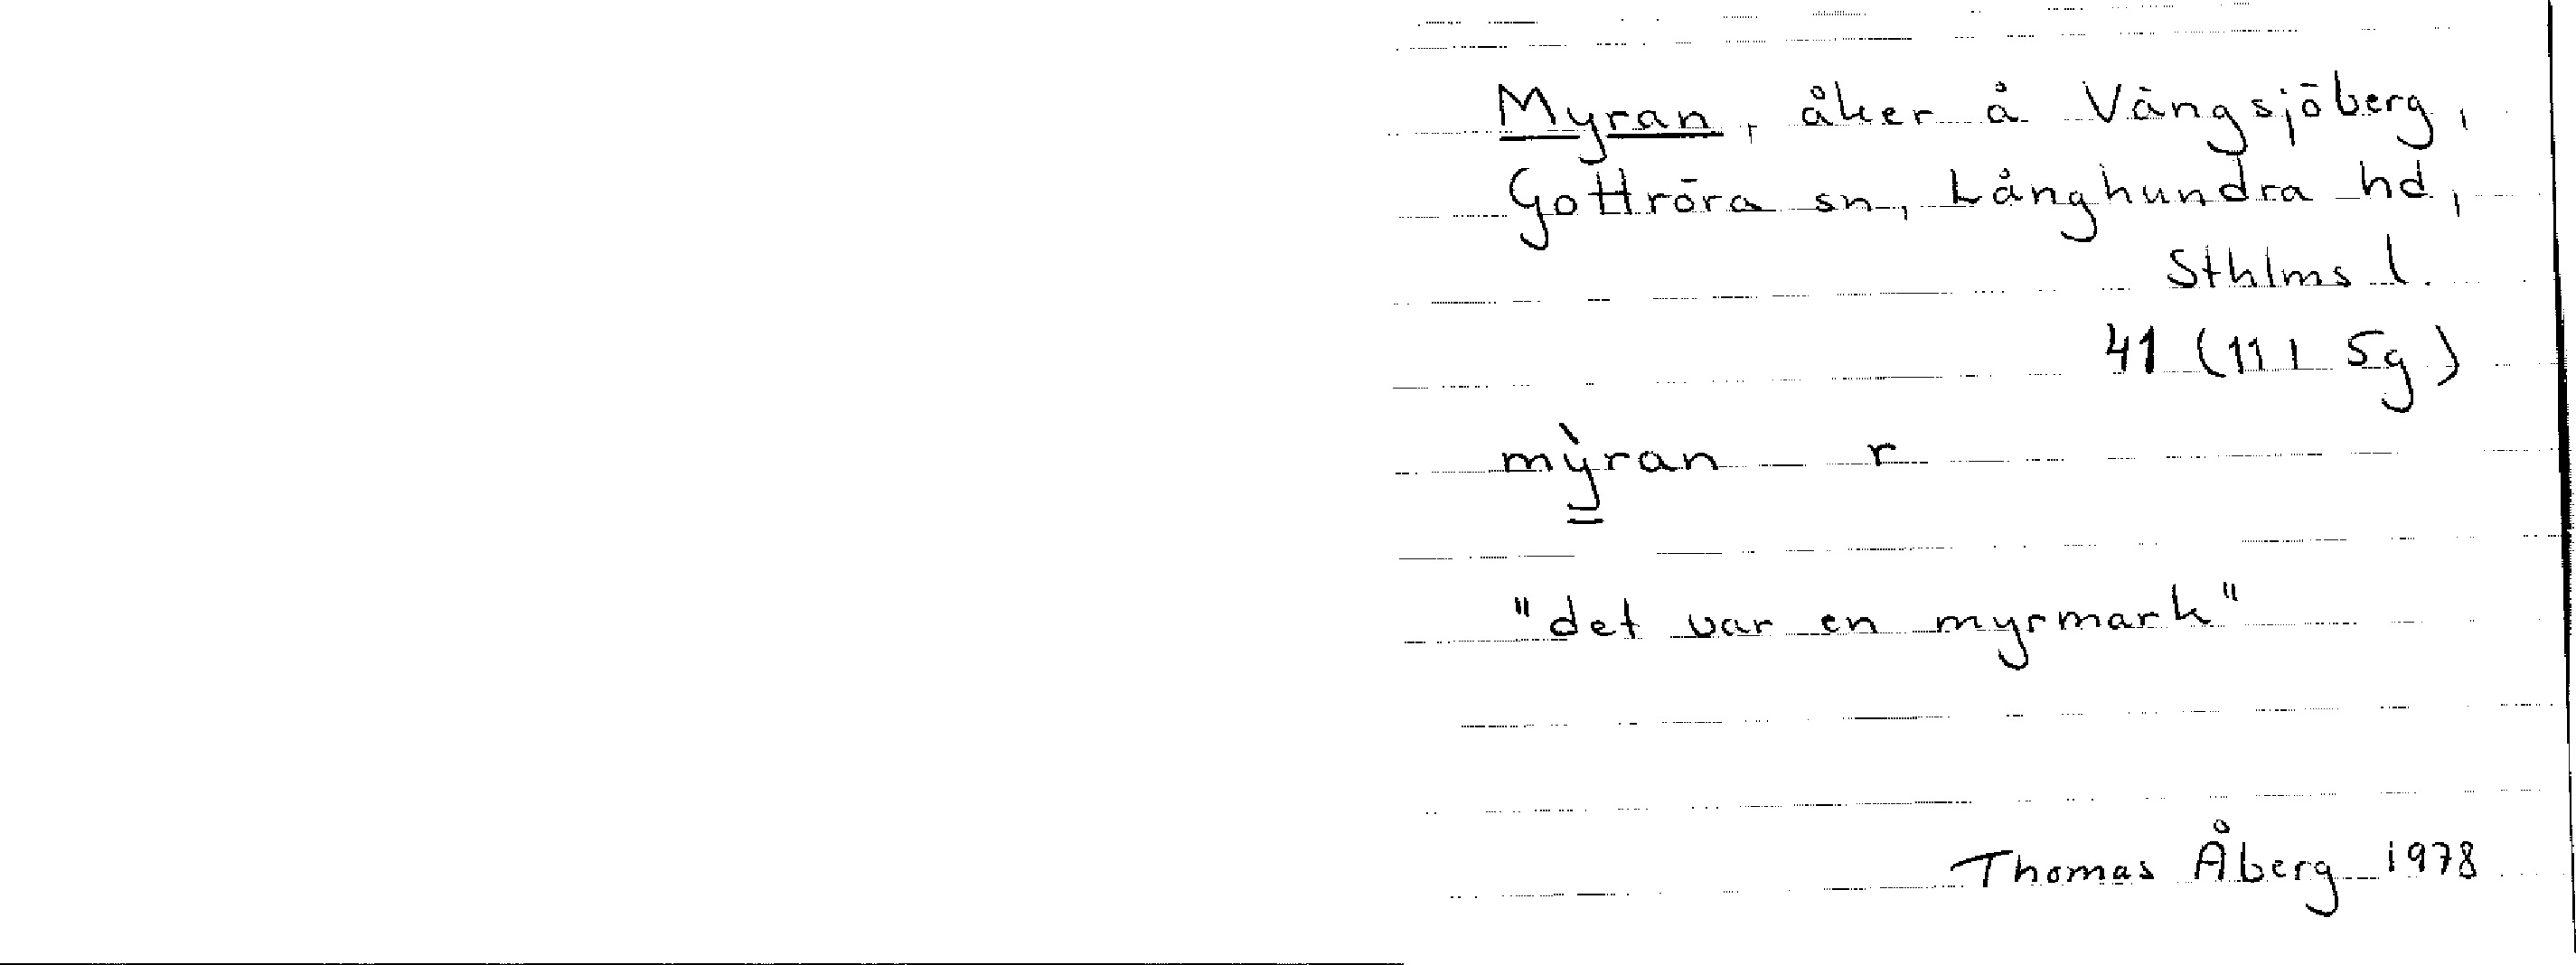 Myran, åker å Vängsjöberg,
Gottröra sn, Långhundra hd,
Sthlms l.
41 (11I 5g)
mỳran r
"det var en myrmark"
Thomas Åberg 1978